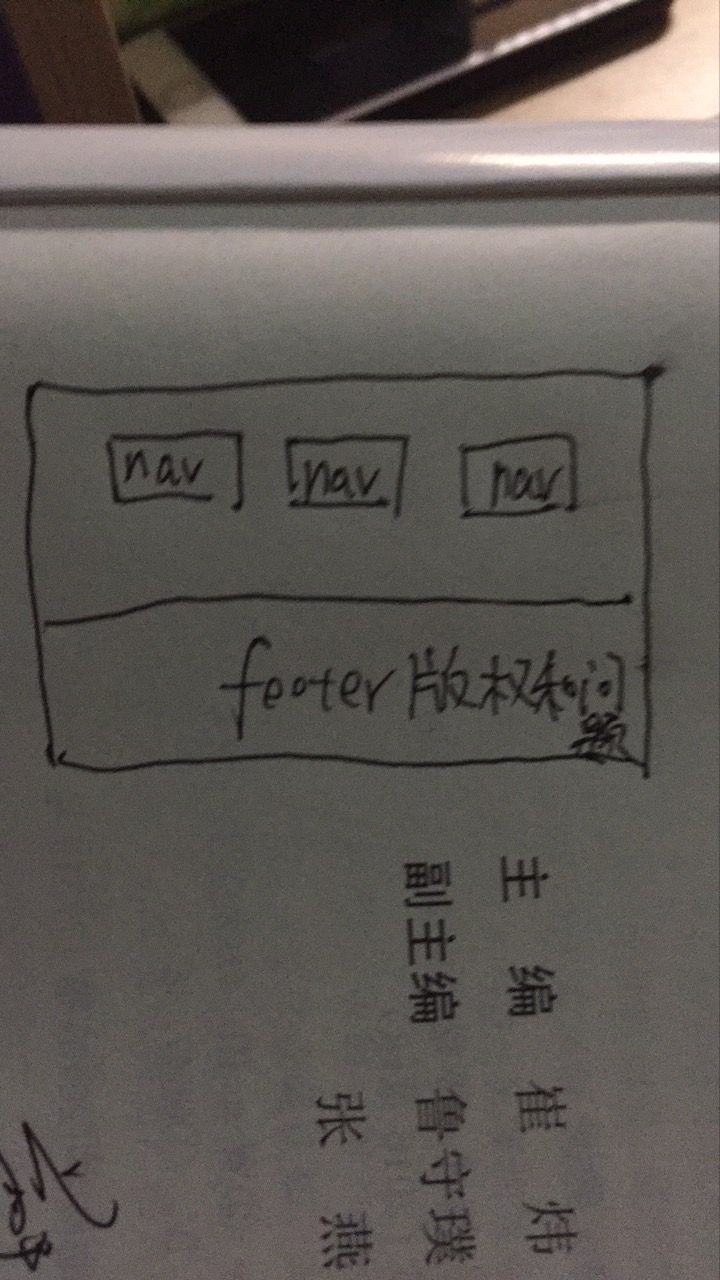 nav nav nav
footer 版权和问
题
主 编 崔 炜
副主编 鲁守璞
张 燕